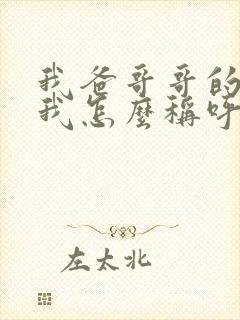 我爸哥哥的
我怎麼稱呼
左太北